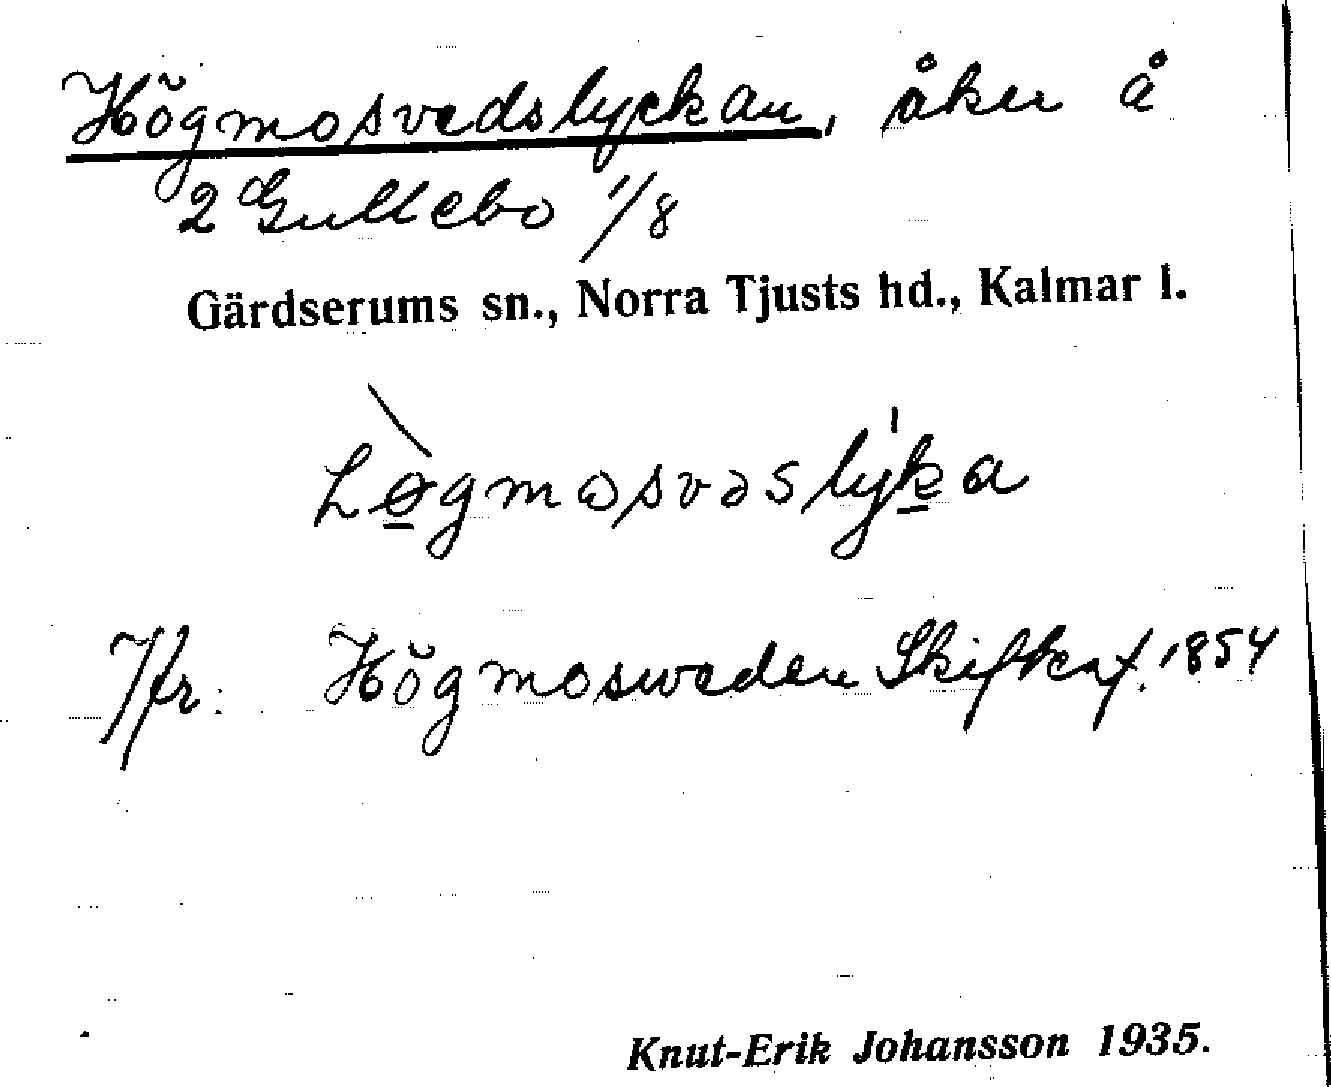 Högmosvedslyckan, åker å
2 Gullebo 1/8
Gärdserums sn., Norra Tjusts hd., Kalmar l.
Jfr: Högmosweden Skifkaf. 1854
Knut-Erik Johansson 1935.